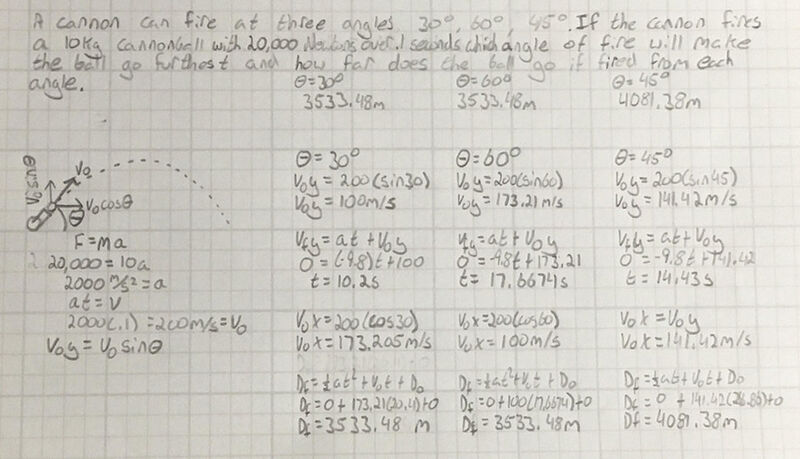 A cannon can fire at three angles 30°, 60°, 45°. If the cannon fires
a 10Kg cannonball with 20,000 Newtons over .1 seconds which angle of fire will make
the ball go furthest and how far does the ball go if fired from each
angle.
θ=30° θ=60° θ=45°
3533.48m 3533.48m 4081.38m
V₀ sinθ
V₀
V₀cosθ
θ
F=ma
20,000=10a
2000 m/s²=a
at=V
2000(.1)=200m/s=V₀
V₀y=V₀ sinθ
θ=30°
V₀y=200(sin30)
V₀y=100m/s
Vfy=at+V₀y
0=(-9.8)t+100
t=10.2s
V₀x=200(cos30)
V₀x=173.205m/s
Df=½at²+V₀t+D₀
Df=0+173.21(20.4)+0
Df=3533.48 m
θ=60°
V₀y=200(sin60)
V₀y=173.21m/s
Vfy=at+V₀y
0=-9.8t+173.21
t=17.6674s
V₀x=200(cos60)
V₀x=100m/s
Df=½at²+V₀t+D₀
Df=0+100(17.6674)+0
Df=3533.48m
θ=45°
V₀y=200(sin45)
V₀y=141.42m/s
Vfy=at+V₀y
0=-9.8t+141.42
t=14.43s
V₀x=V₀y
V₀x=141.42m/s
Df=½at+V₀t+D₀
Df=0+141.42(28.86)+0
Df=4081.38m